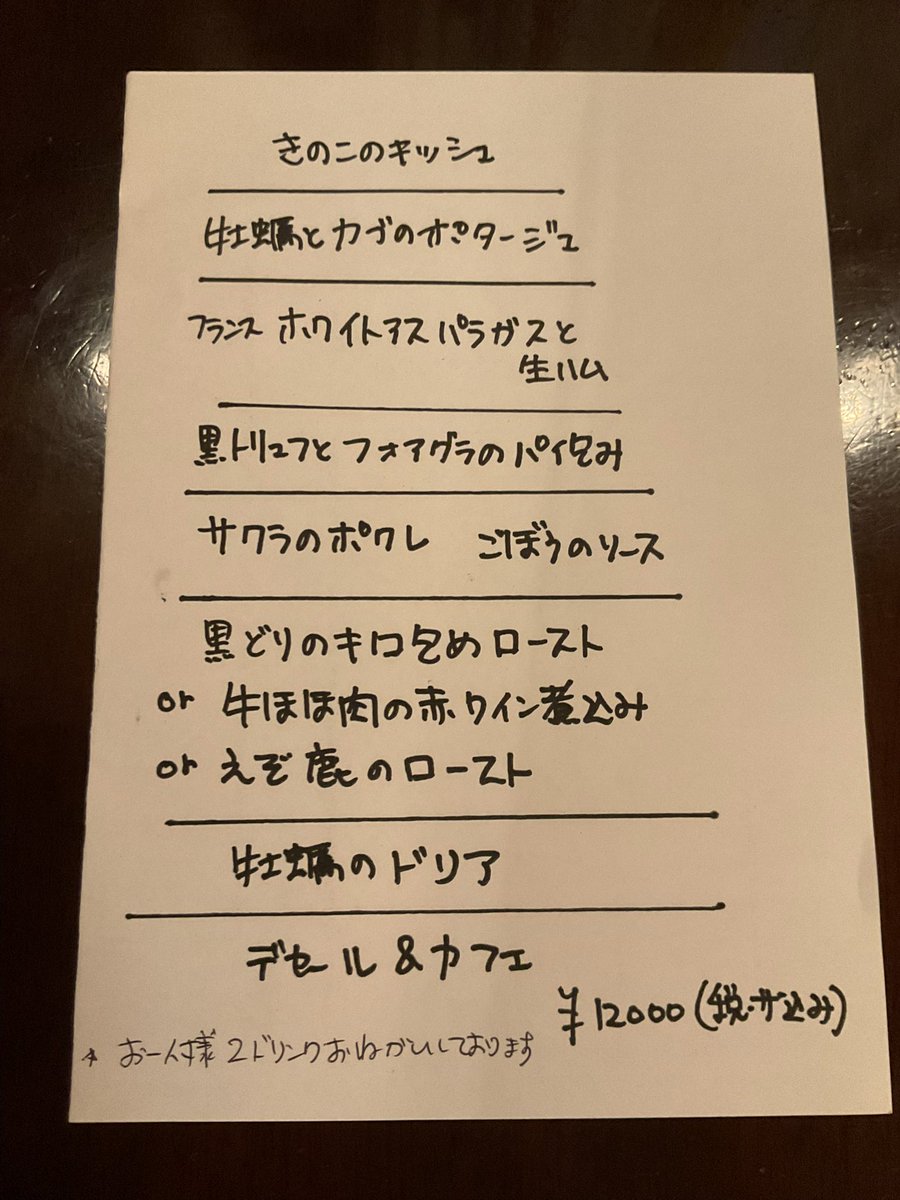 きのこのキッシュ
牡蠣とカブのポタージュ
フランス ホワイトアスパラガスと
生ハム
黒トリュフとフォアグラのパイ包み
サワラのポワレ ごぼうのソース
黒どりのキロ包めロースト
or 牛ほほ肉の赤ワイン煮込み
or えぞ鹿のロースト
牡蠣のドリア
デセール&カフェ
¥12000(税・サ込み)
* お一人様2ドリンクおねがいしております